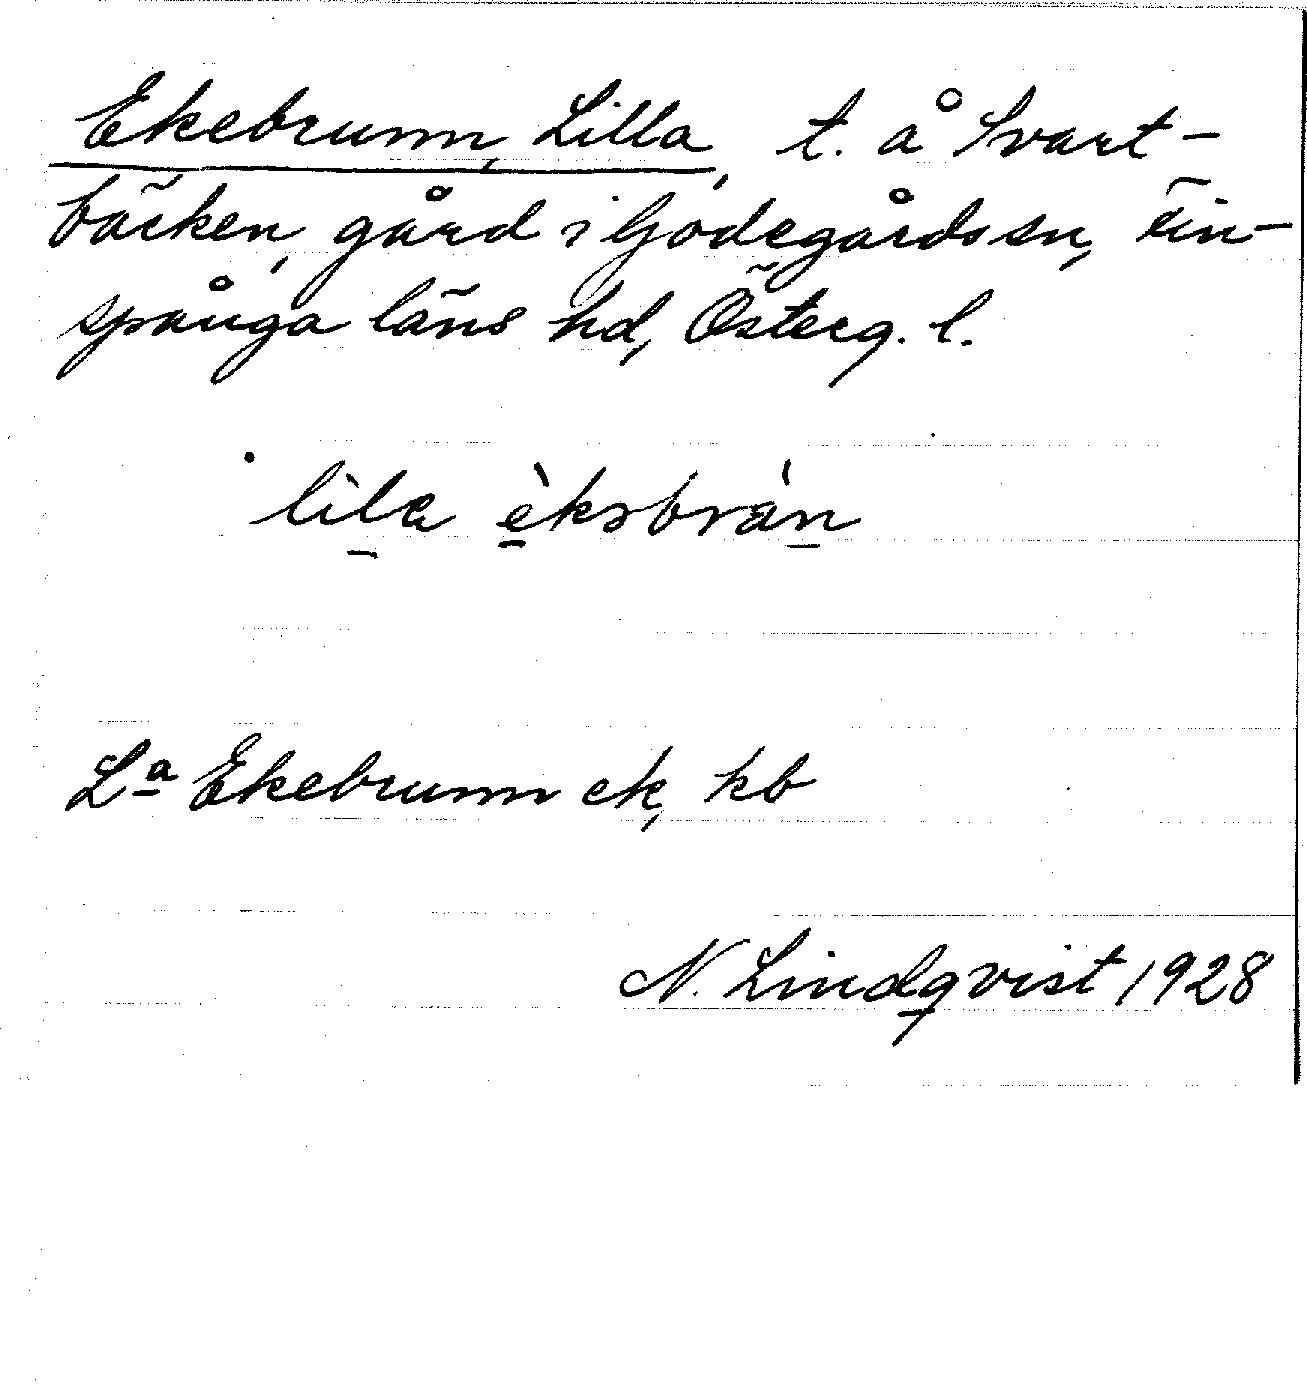 Ekebrunn, Lilla, t. å Svart-
bäcken, gård i Godegårds sn, Fin-
spånga läns hd, Österg. l.
lila èkəbràn
La Ekebrunn ek, kb
N. Lindqvist 1928